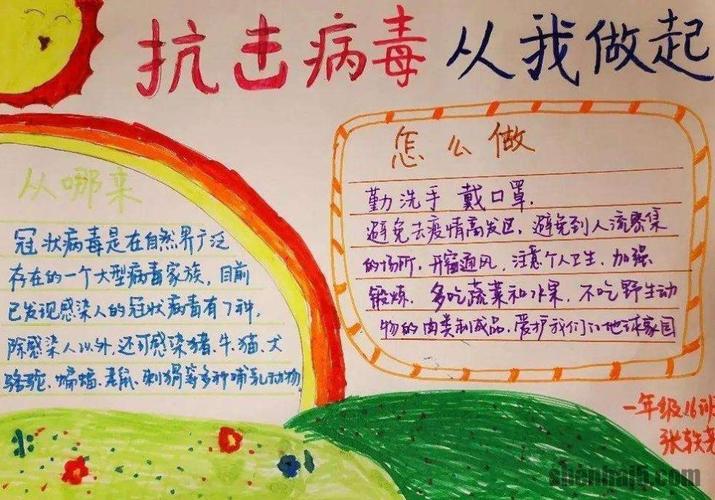 抗击病毒 从我做起
从哪来
冠状病毒是在自然界广泛
存在的一个大型病毒家族，目前
已发现感染人的冠状病毒有7种，
除感染人以外，还可感染猪、牛、猫、犬
骆驼、蝙蝠、老鼠、刺猬等多种哺乳动物
怎么做
勤洗手 戴口罩，
避免去疫情高发区，避免到人流密集
的场所，开窗通风，注意个人卫生，加强
锻炼，多吃蔬菜和水果，不吃野生动
物的肉类制成品，爱护我们的地球家园
一年级16班
张轶
shenhai5.com